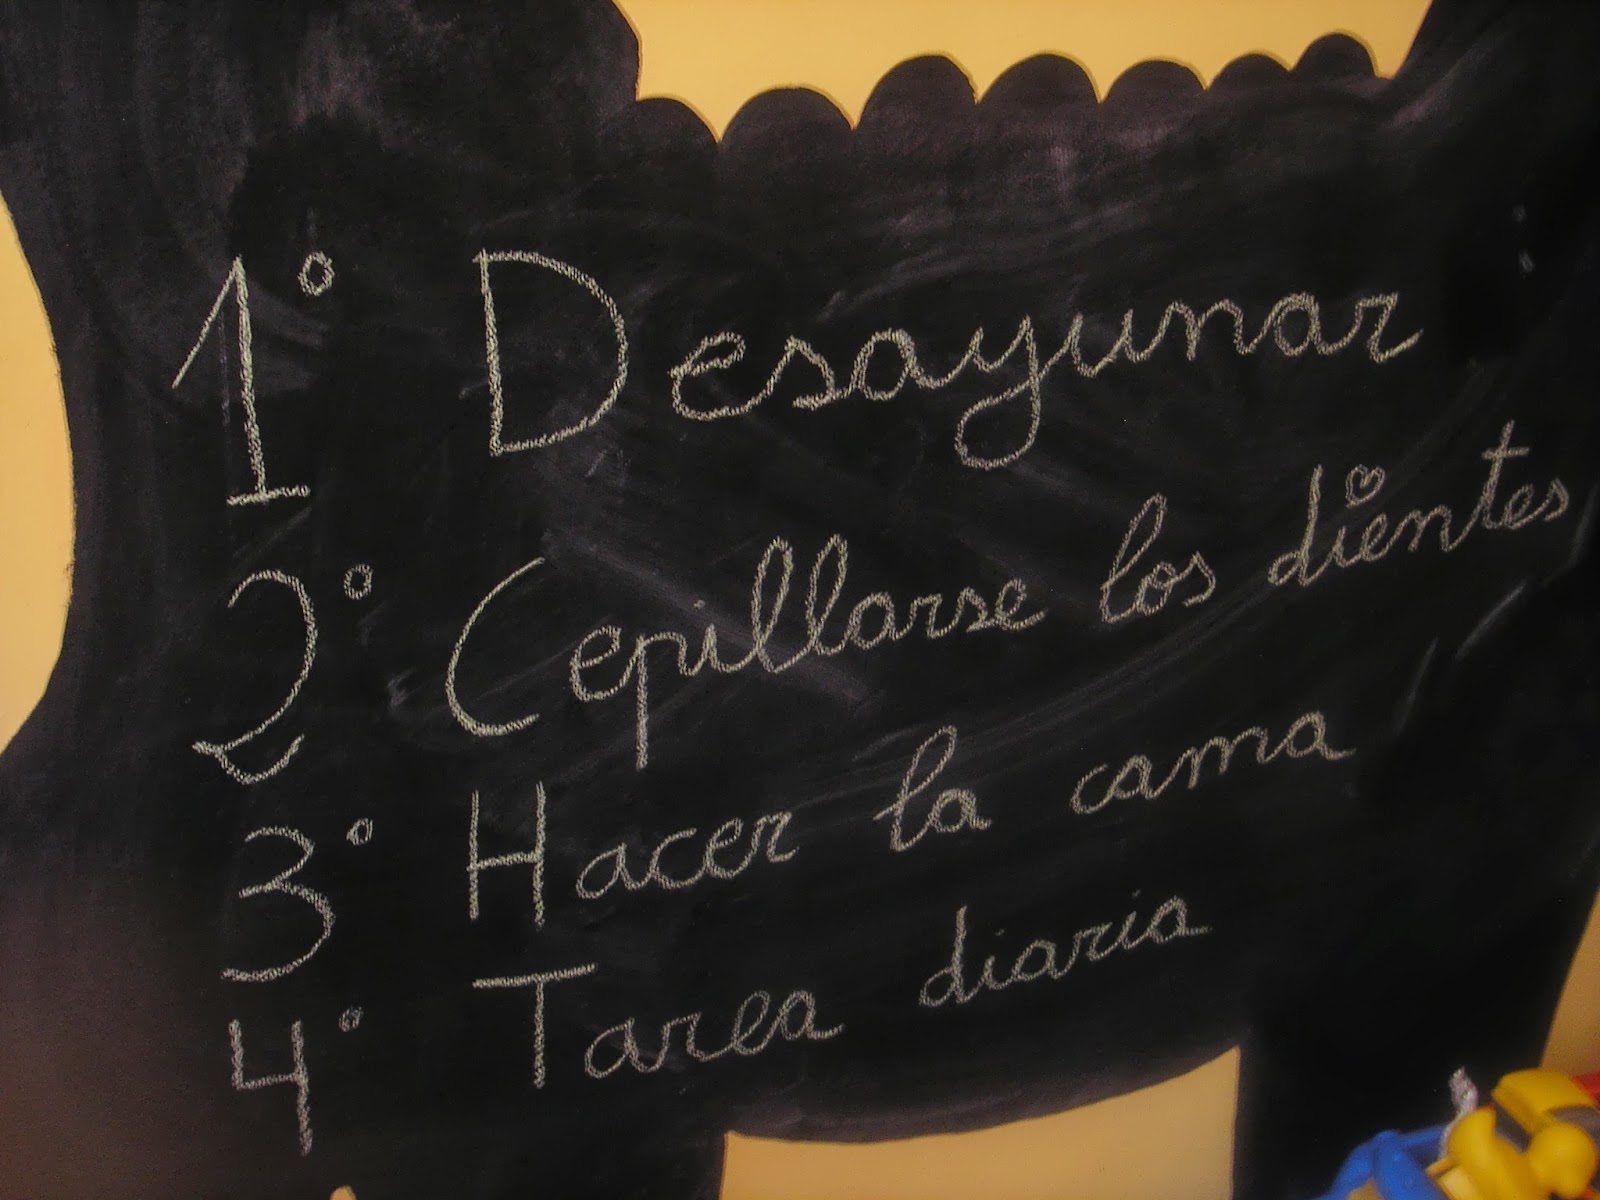 1º Desayunar
2º Cepillarse los dientes
3º Hacer la cama
4º Tarea diaria